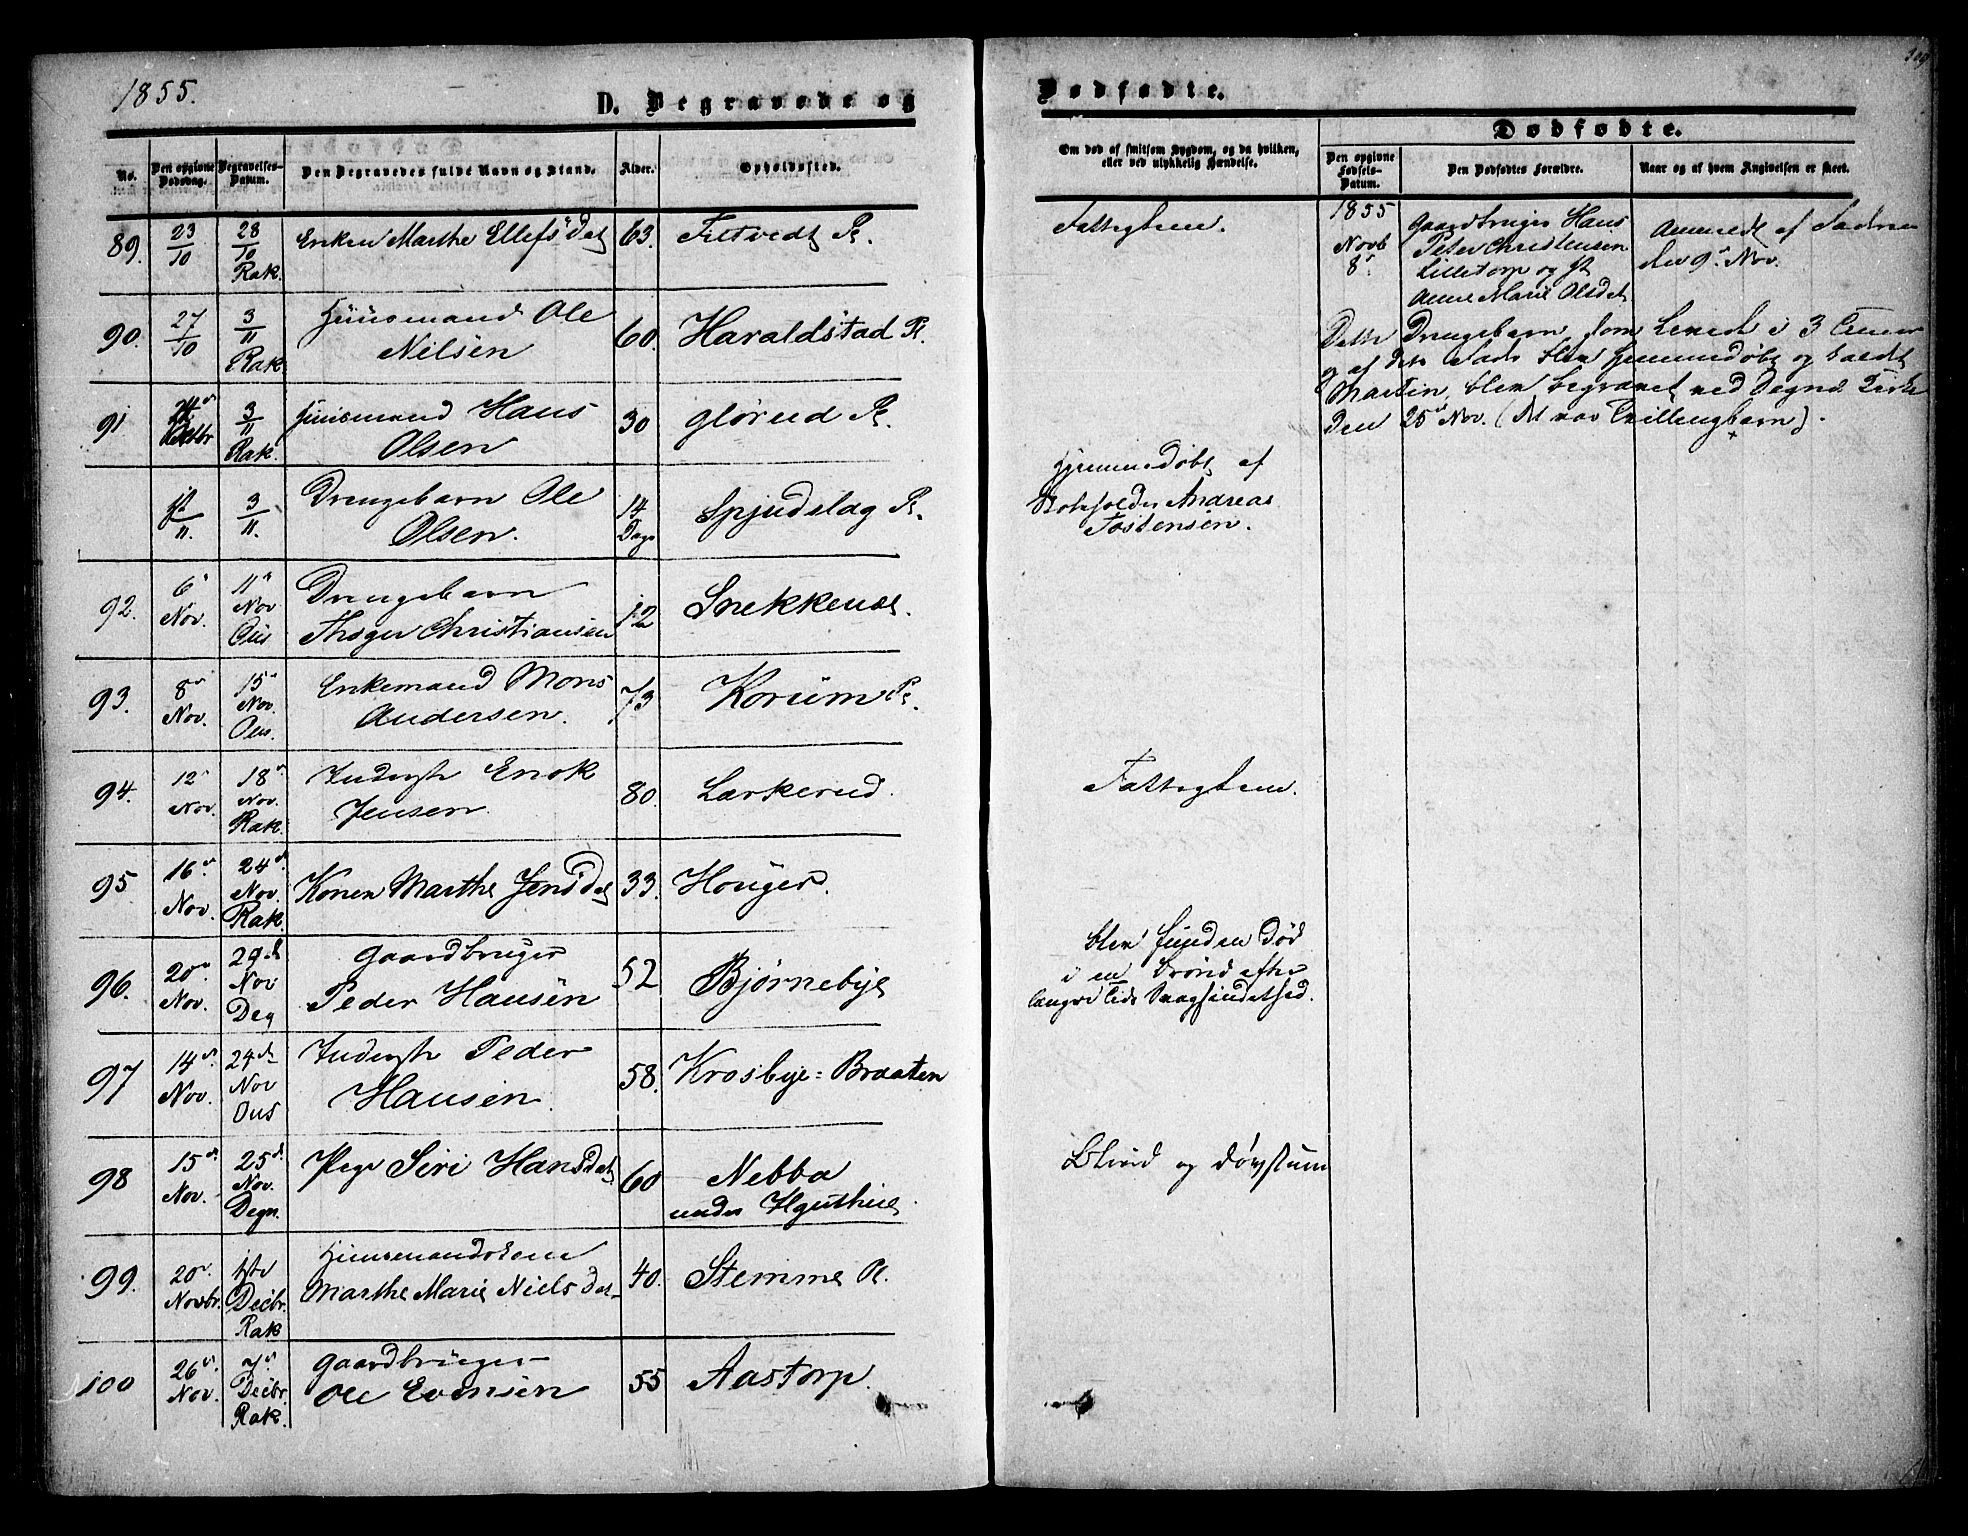 1855.
D. Begravede og
No.
Den opgivne Dødsdag.
Begravelses-Datum.
Den Begravedes fulde Navn og Stand.
Alder.
Opholdssted.
89. 23/10 28/10 Rak. Enken Marthe Ellefs Dat 63. R.
90. 27/10 3/11 Rak. Huusmand Ole
Nilsen 60. Haraldstad R.
91 Octbr 3/11 Rak. Huusmand Hans
Olsen 30 Glørud R.
1st/11. 3/11. Drengebarn Ole
Olsen. 14 Dage Spjudslag R.
92. 6 Nov. 11 Nov Ous Drengebarn
Christiansen 12 Snekkenes.
93. 8de Nov. 15 Nov. Ous. Enkemand Mons
Andersen. 73 Korum R.
94. 12 Nov. 18de Nov. Rak. Inderst Enok
Jensen. 80. Lærkerud.
95 16de Nov. 24de Nov. Rak. Konen Marthe Jens Dat 33. Houger.
96. 20de Nov. 29de Nov Deg Gaardbruger
Peder Hansen 52 Bjørnebye
97 14de Nov. 24de Nov Ous Inderst Peder
Hansen. 58. Krosbye=Braaten
98 15de Nov. 25de Nov. Degn. Pige Siri Hansdat. 60 Nebba
under
99. 20de Novbr. 1ste Decbr. Rak Huusmandskone
Marthe Marie Niels Dat 40. Stemme R.
100 26de Nov. 7de Decbr. Rak. Gaardbruger
Ole Evensen 55 Aastorp.
Dødfødte.
309
Om død af smitsom Sygdom, og da hvilken,
eller ved ulykkelig Hændelse.
Dødfødte.
Den opgivne Fødsels-Datum.
Den Dødfødtes Forældre.
Naar og af hvem Angivelsen er skeet.
Fattiglem.
1855
Novb
8de
Gaardbruger Hans
Peter Christensen
Lilletorp og
Anne Marie Olsdat
Anmeldt af Faderen
den 9de Nov.
Dette Drengebarn, som levede i 3 Timer
og af dets Fader blev hjemmedøbt og kaldt
Martin, blev begravet ved Degnæs Kirke
Den 25de Nov. (Det var Tvillingbarn).
Hjemmedøbt af
Andreas
Tostensen.
Fattiglem.
blev funden Død
i en Brønd efter
længre Tids Svagsindethed.
Blind og døvstum